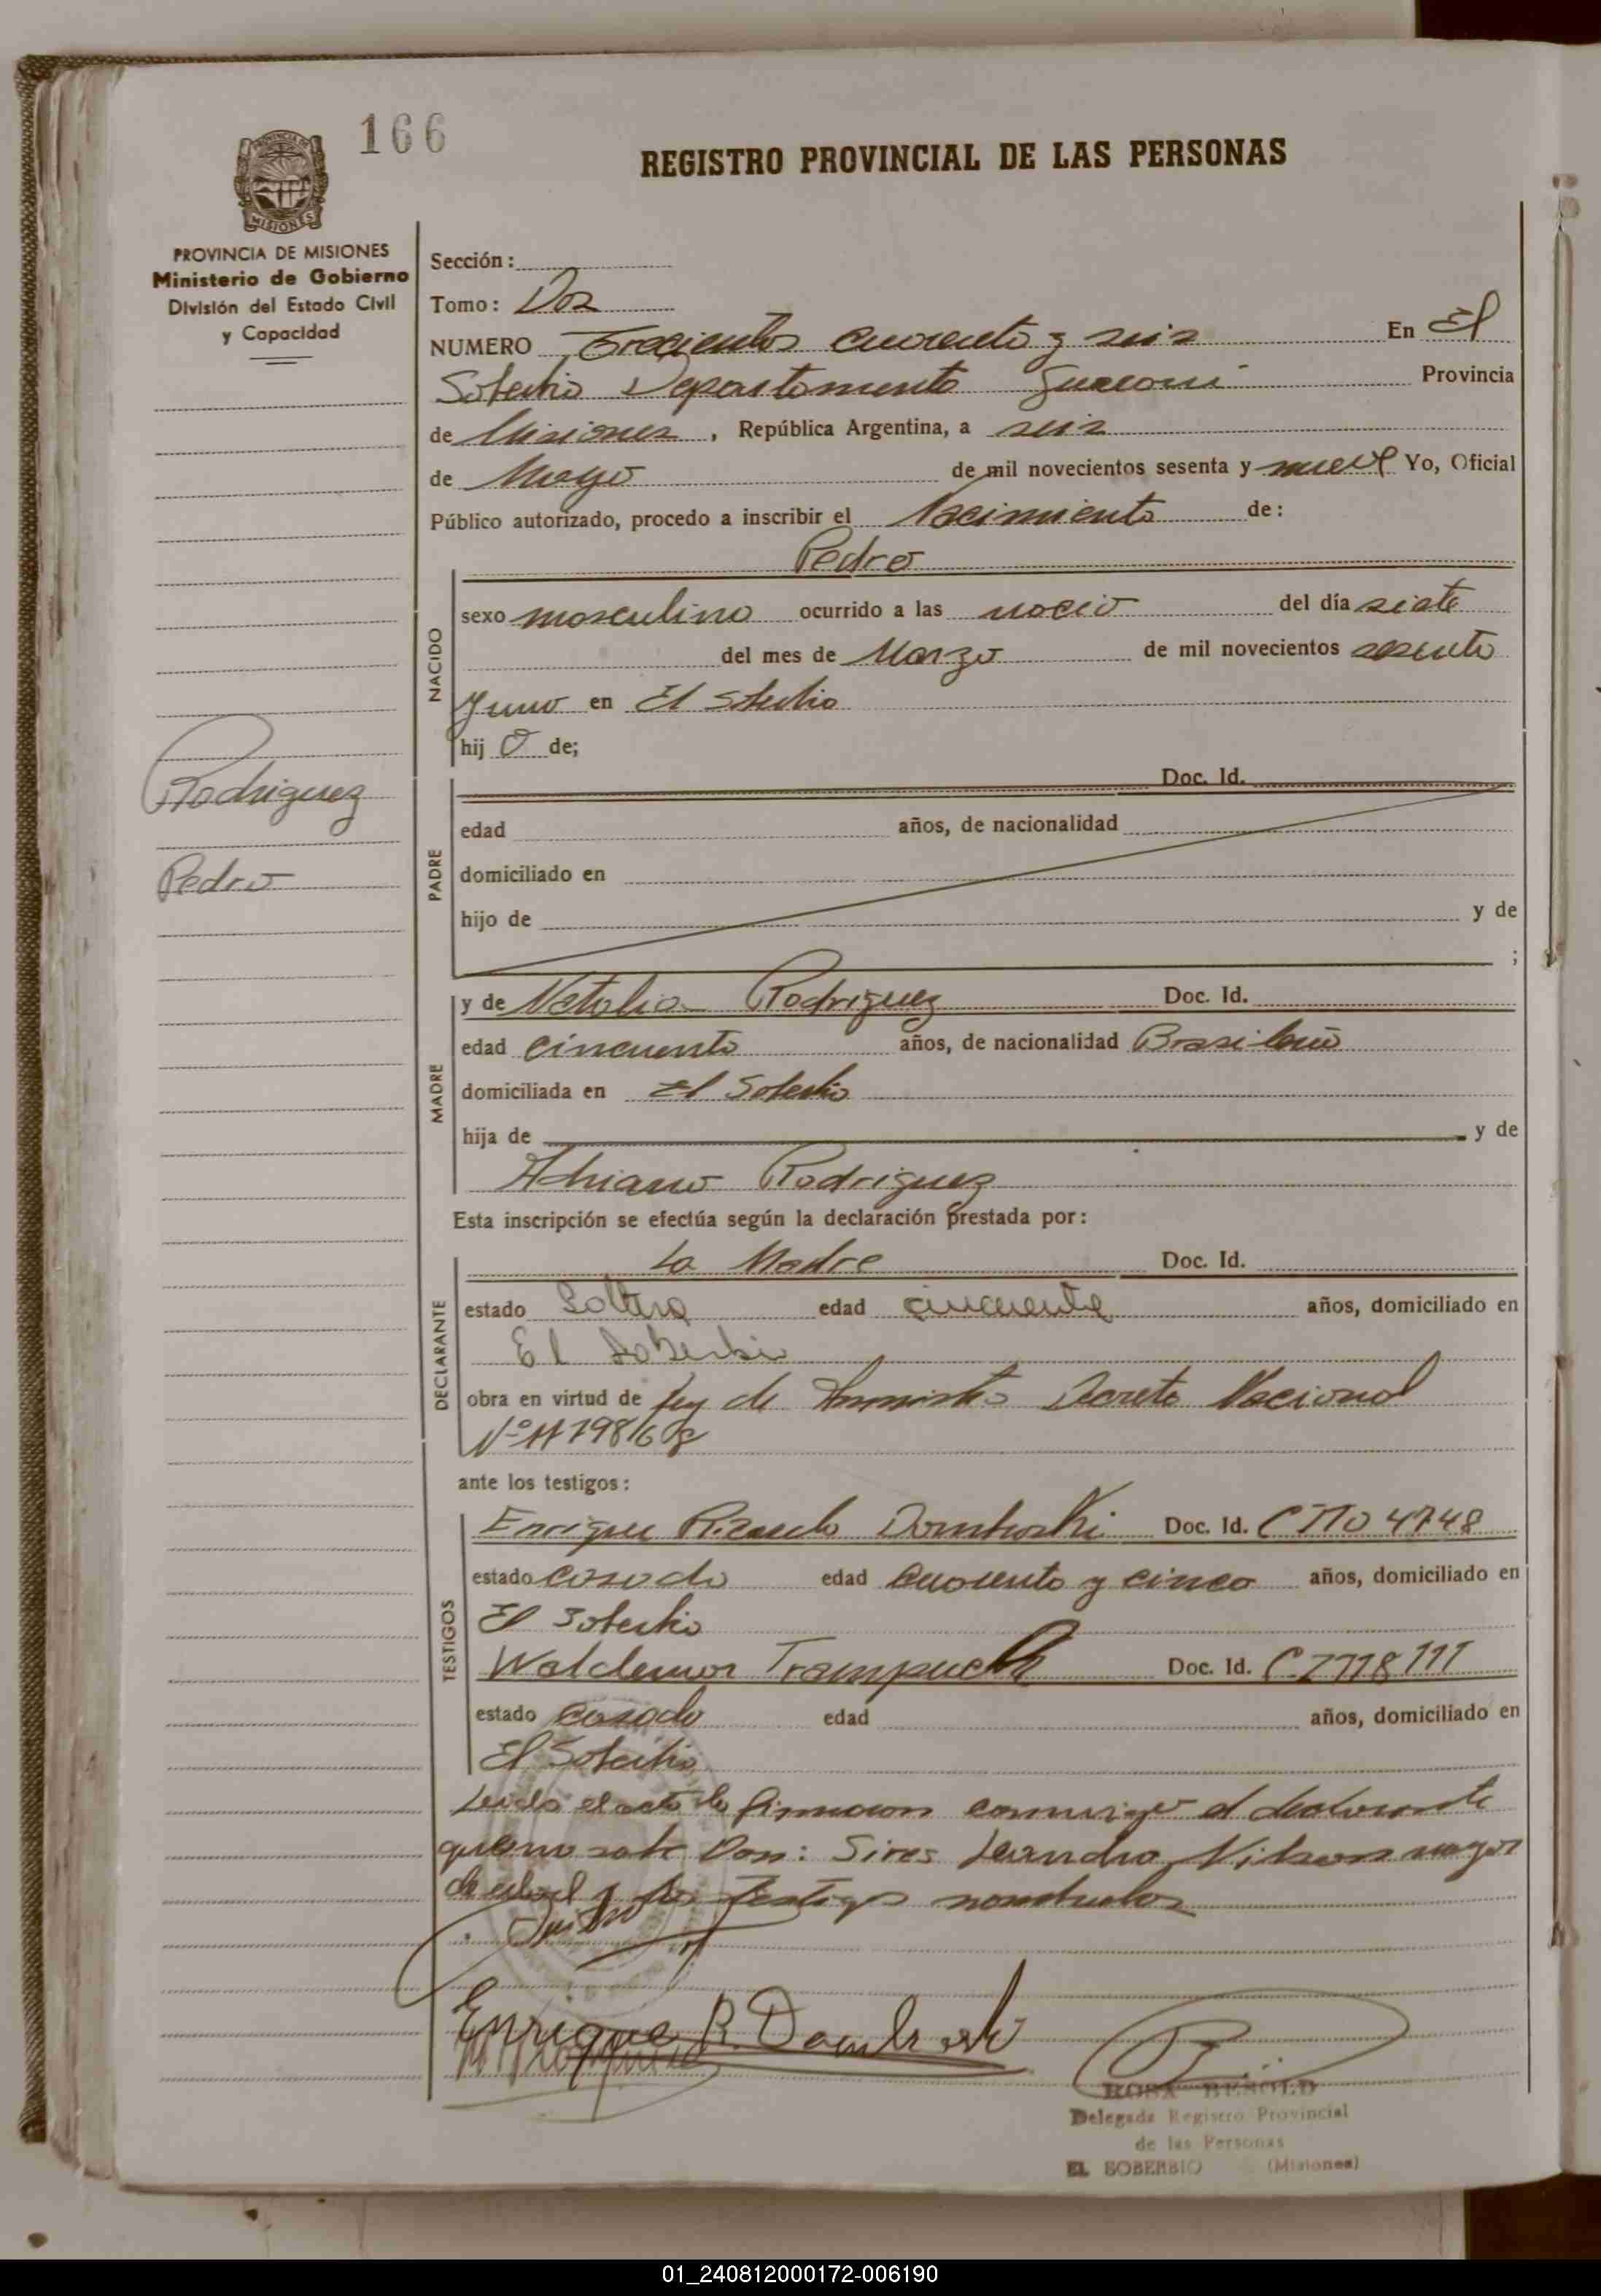 166
REGISTRO PROVINCIAL DE LAS PERSONAS
MISIONES
PROVINCIA DE MISIONES
Ministerio de Gobierno
División del Estado Civil
y Capacidad
Sección:
Tomo: Dos
NUMERO Trecientos cuarenta y seis En El
Soberbio Departamento Guarani Provincia
de Misiones, República Argentina, a seis
de Mayo de mil novecientos sesenta y nueve Yo, Oficial
Público autorizado, procedo a inscribir el Nacimiento de:
Pedro
NACIDO
sexo masculino ocurrido a las del día siete
del mes de Marzo de mil novecientos sesenta
y uno en El Soberbio
hij o de;
Rodriguez
Pedro
PADRE
Doc. Id.
edad años, de nacionalidad
domiciliado en
hijo de y de
;
MADRE
y de Natalia Rodriguez Doc. Id.
edad cincuenta años, de nacionalidad Brasileña
domiciliada en El Soberbio
hija de y de
Adriano Rodriguez
Esta inscripción se efectúa según la declaración prestada por:
DECLARANTE
La Madre Doc. Id.
estado Soltera edad cincuenta años, domiciliado en
El Soberbio
obra en virtud de Ley de Amnistia Decreto Nacional
Nº
ante los testigos:
TESTIGOS
Enrique Ricardo Dombroski Doc. Id.
estado casado edad cuarenta y cinco años, domiciliado en
El Soberbio
Waldemar Doc. Id.
estado casado edad años, domiciliado en
El Soberbio
Leida el acta la firmaron conmigo el declarante
que no sabe Don: Sires Leandro mayor
de edad y los testigos nombrados
Enrique R. Dombroski
ROSA BESOLD
Delegada Registro Provincial
de las Personas
EL SOBERBIO (Misiones)
01_240812000172-006190